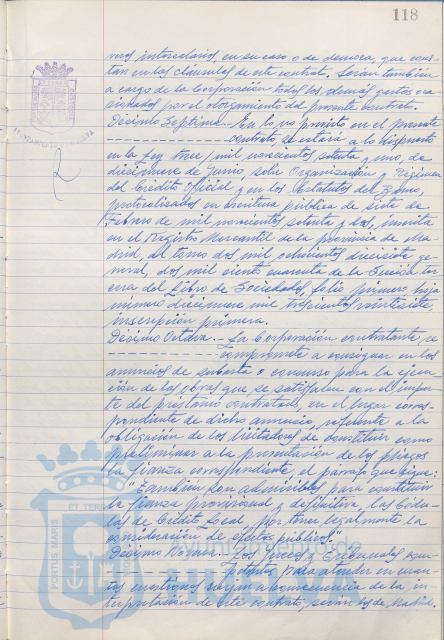 118
reses intercalarios en su caso o de demora, que cons-
tan en las cláusulas de este contrato. Serán también
a cargo de la Corporación todos los demás gastos oca
sionados por el otorgamiento del presente contrato.
Décimo Septima.- En lo no previsto en el presente
contrato, se estará a lo dispuesto
en la Ley trece/mil novecientos setenta y uno, de
diecinueve de junio, sobre Organización y Régimen
del Crédito Oficial y en los Estatutos del Banco,
protocolizados en escritura pública de siete de
Febrero de mil novecientos setenta y dos, inscrita
en el Registro Mercantil de la provincia de Ma-
drid, al tomo dos mil ochocientos diecisiete ge-
neral, dos mil ciento cuarenta de la Sección ter
cera del Libro de Sociedades, folio primero, hoja
número diecinueve mil trescientos veintisiete,
inscripción primera.
Décimo Octava.- La Corporación contratante se
compromete a consignar en los
anuncios de subasta o concurso para la ejecu-
ción de las obras que se satisfagan con el impor
te del préstamo contratado, en el lugar corres-
pondiente de dicho anuncio, referente a la
obligación de los licitadores de constituir como
preliminar a la presentación de los pliegos
la fianza correspondiente el párrafo que sigue:
"También son admisibles para constituir
la fianza provisional y definitiva, las Cédu-
las de Crédito Local, por tener legalmente la
consideración de efectos públicos."
Décimo Novena.- Los Jueces y Tribunales com-
petentes para atender en cuan-
tas cuestiones surjan a consecuencia de la in-
terpretación de este contrato, serán los de Madrid.
PORTUS MARIS
ET TERRAE
HUELVA